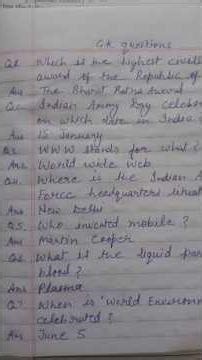 GK questions
Q1. Which is the highest civili
award of the Republic of
Ans The Bharat Ratna Award
Q2. Indian Army Day celebra
on which date in India
Ans 15 January
Q3. WWW stands for what ?
Ans World wide web
Q4. Where is the Indian A
Force headquarters situat
Ans New Delhi
Q5. Who invented mobile ?
Ans Martin Cooper
Q6. What is the liquid par
blood ?
Ans Plasma
Q7. When is 'World Environm
celebrated ?
Ans June 5